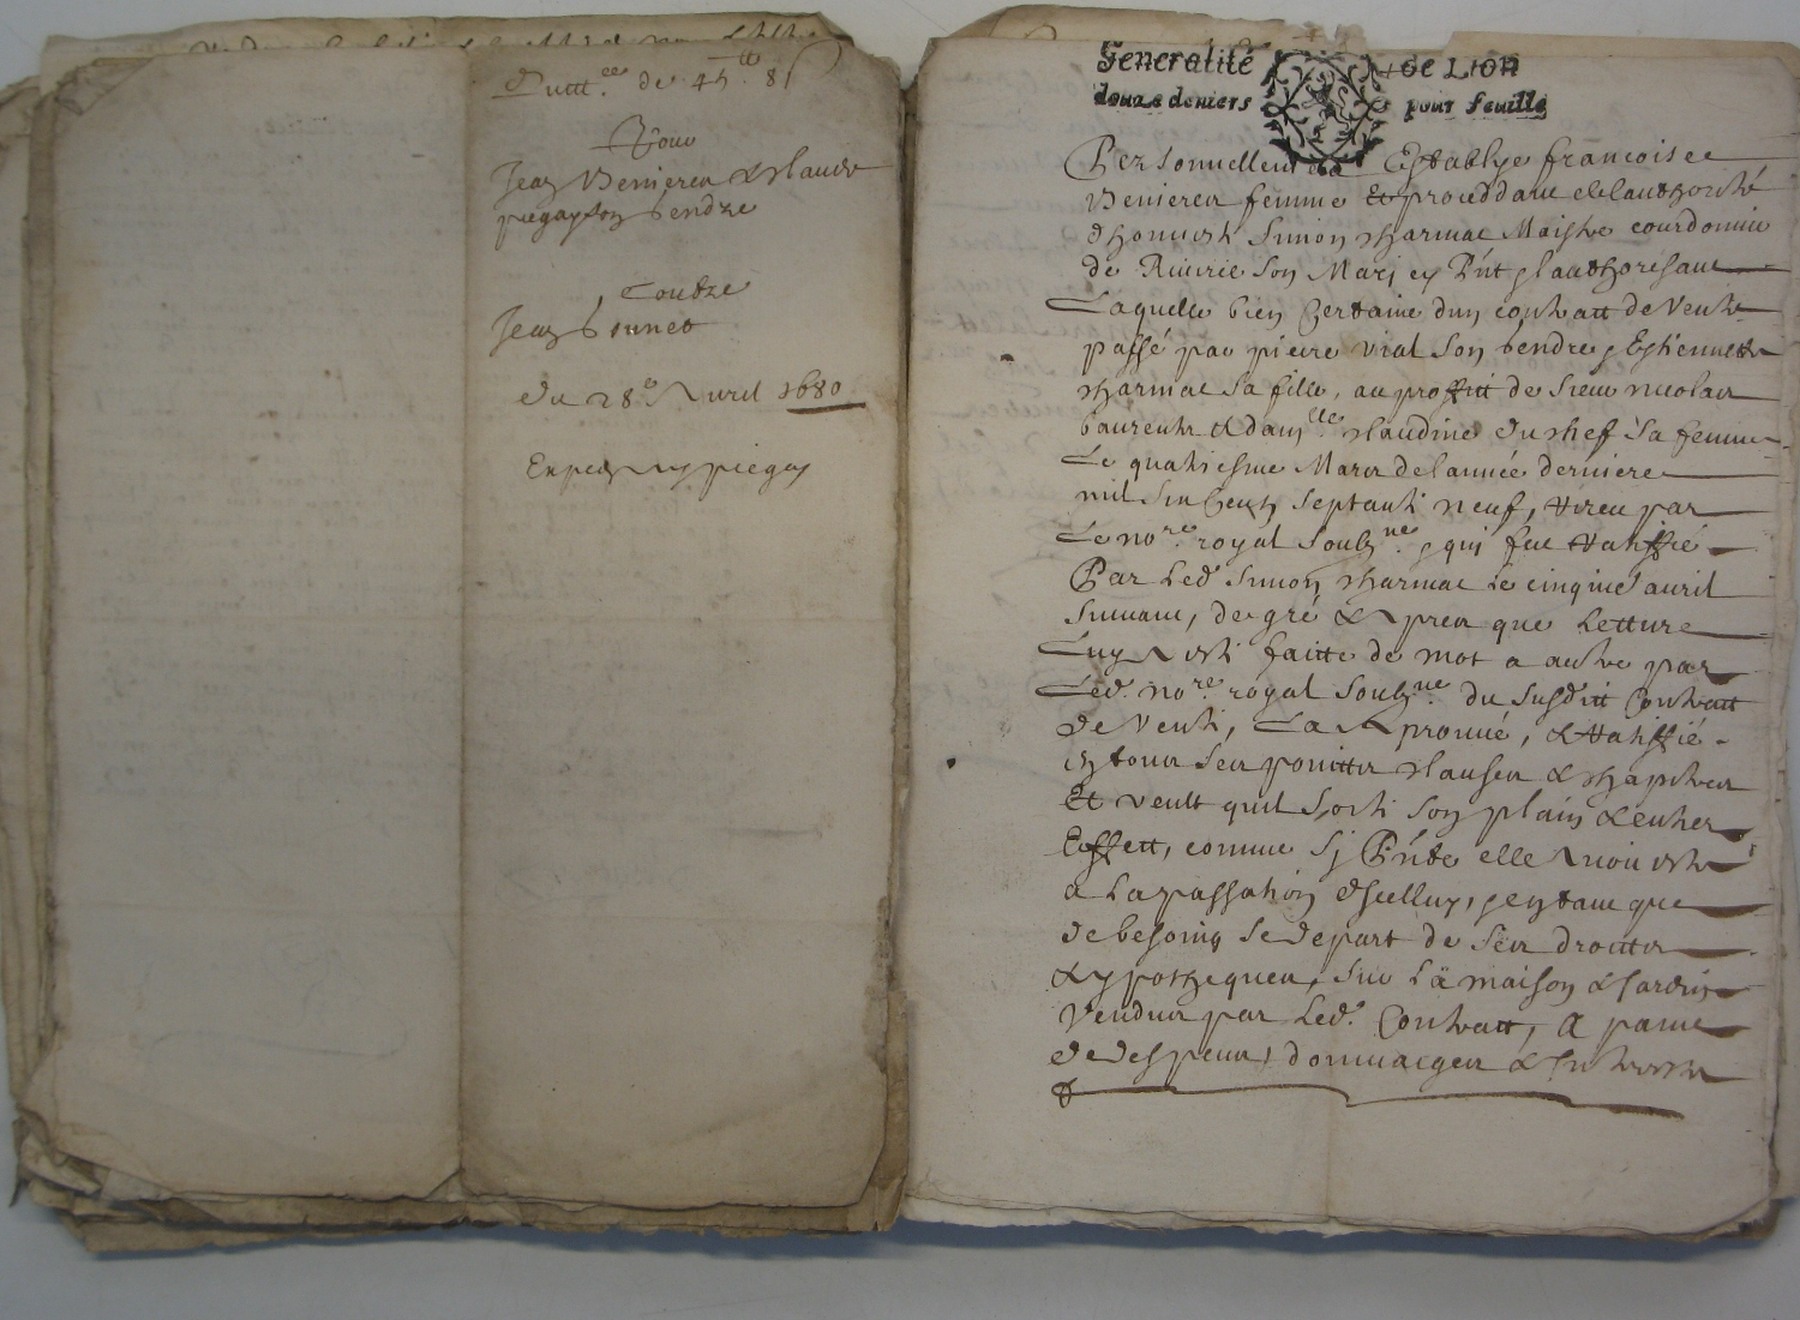 Quitt.ce de 45 tt 8 s
Pour
Jean Venieren & Claude
piegay son gendre
Contre
Jean brunet
du 28e Avril 1680
Exped piegay
Generalité de Lion
douze deniers pour feuille
Personnellement Establye francoise
Venieren femme Et proceddant de lauthorité
dhonnest Simon Charmat Maistre courdonnie
de Riverie son Marj et Pnt lauthorisant
Laquelle bien Certaine dun contratt de Vente
passé par pierre Vial son gendre Estiennette
Charmat sa fille, au proffitt de sieur nicolas
laurents & dam.lle Claudine du Chef sa femme
Le quatriesme Mars de lannée derniere
mil six Cents septante neuf, receu par
Le no.re royal soubz.né qui fut rattiffié
Par Led. Simon Charmat Le cinqme avril
suivant, de gré & Apres que Letture
Luy A esté faitte de mot a autre par
Led. no.re royal soubz.né du susditt Contratt
de Vente, La Aprouvé, & rattiffié
en tous ses pointts Clauses & Chapitres
Et veult quil sorte son plain & entier
Effett, comme sj Pnte elle Avoit esté
a La passation dicelluy, en tant que
de besoing se depart de ses droitts
& ypotheques, sur La maison & Jardin
Vendus par Led. Contratt, A paine
de despens, dommages & Interests